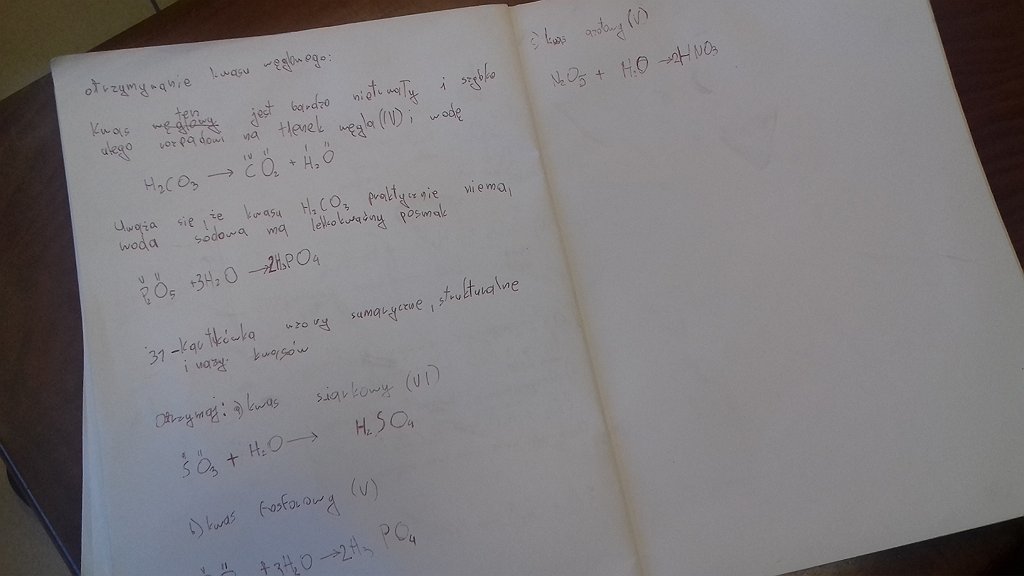 otrzymywanie kwasu węglowego:
ten
Kwas węglowy jest bardzo nietrwały i szybko
ulego rozpadowi na tlenek węgla (IV) i wodę
H₂CO₃ → CO₂ + H₂O
IV II I II
Uważa się, że kwasu H₂CO₃ praktycznie niema,
woda sodowa ma lekkokwaśny posmak
V II
P₂O₅ + 3H₂O → 2H₃PO₄
31 - kartkówka wzory sumaryczne, strukturalne
i nazy. kwasów
Otrzymaj: a) kwas siarkowy (VI)
SO₃ + H₂O → H₂SO₄
b) kwas fosforowy (V)
+ 3H₂O → 2H₃PO₄
c) kwas azotowy (V)
N₂O₅ + H₂O → 2HNO₃